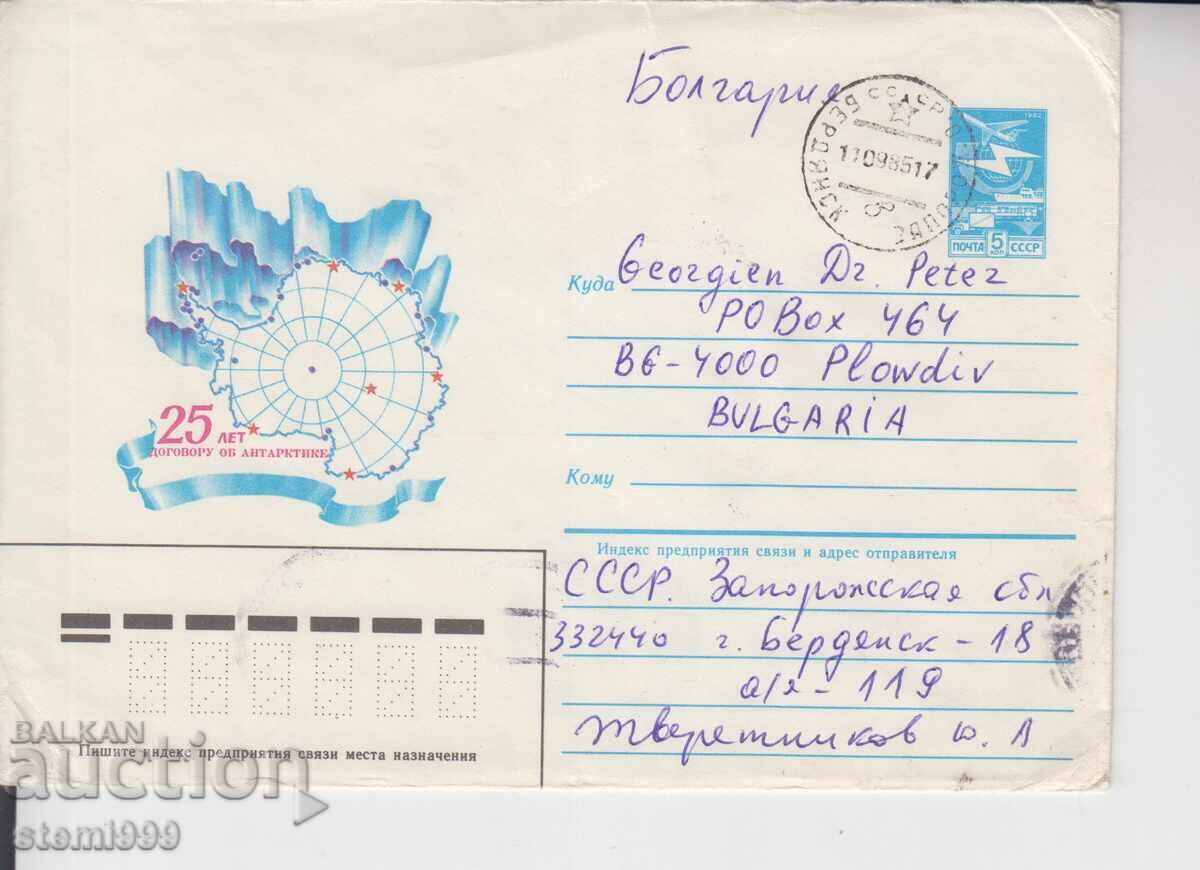 Болгария
СССР
БЕРДЯНСК
11098517
1982
ПОЧТА 5 КОП СССР
Куда Georgien Dr. Peter
PO Box 464
BG-4000 Plowdiv
BULGARIA
25 ЛЕТ
ДОГОВОРУ ОБ АНТАРКТИКЕ
Кому
Индекс предприятия связи и адрес отправителя
СССР. Запорожская обл
332440 г. Бердянск-18
а/я-119
Жверетников Ю. А
Пишите индекс предприятия связи места назначения
BALKAN
auction
stemi999